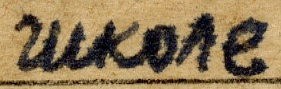 школе